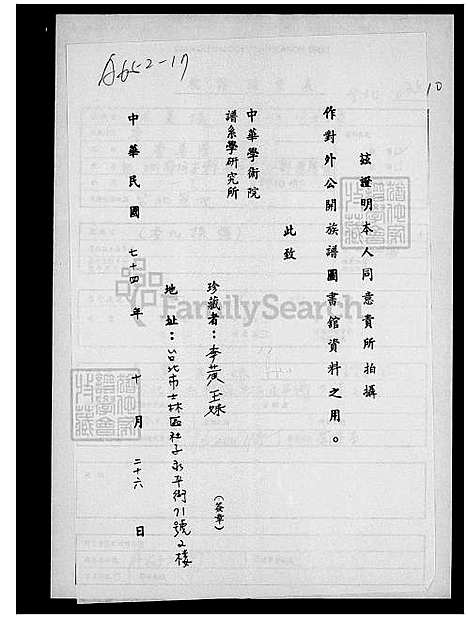 A652-17
10
茲證明本人同意貴所拍攝
作對外公開族譜圖書館資料之用。
此致
中華學術院
譜系學研究所
珍藏者：李黃玉妹
(簽章)
地址：台北市士林區社子永平街71號2樓
中華民國七十四年十月二十六日
FamilySearch